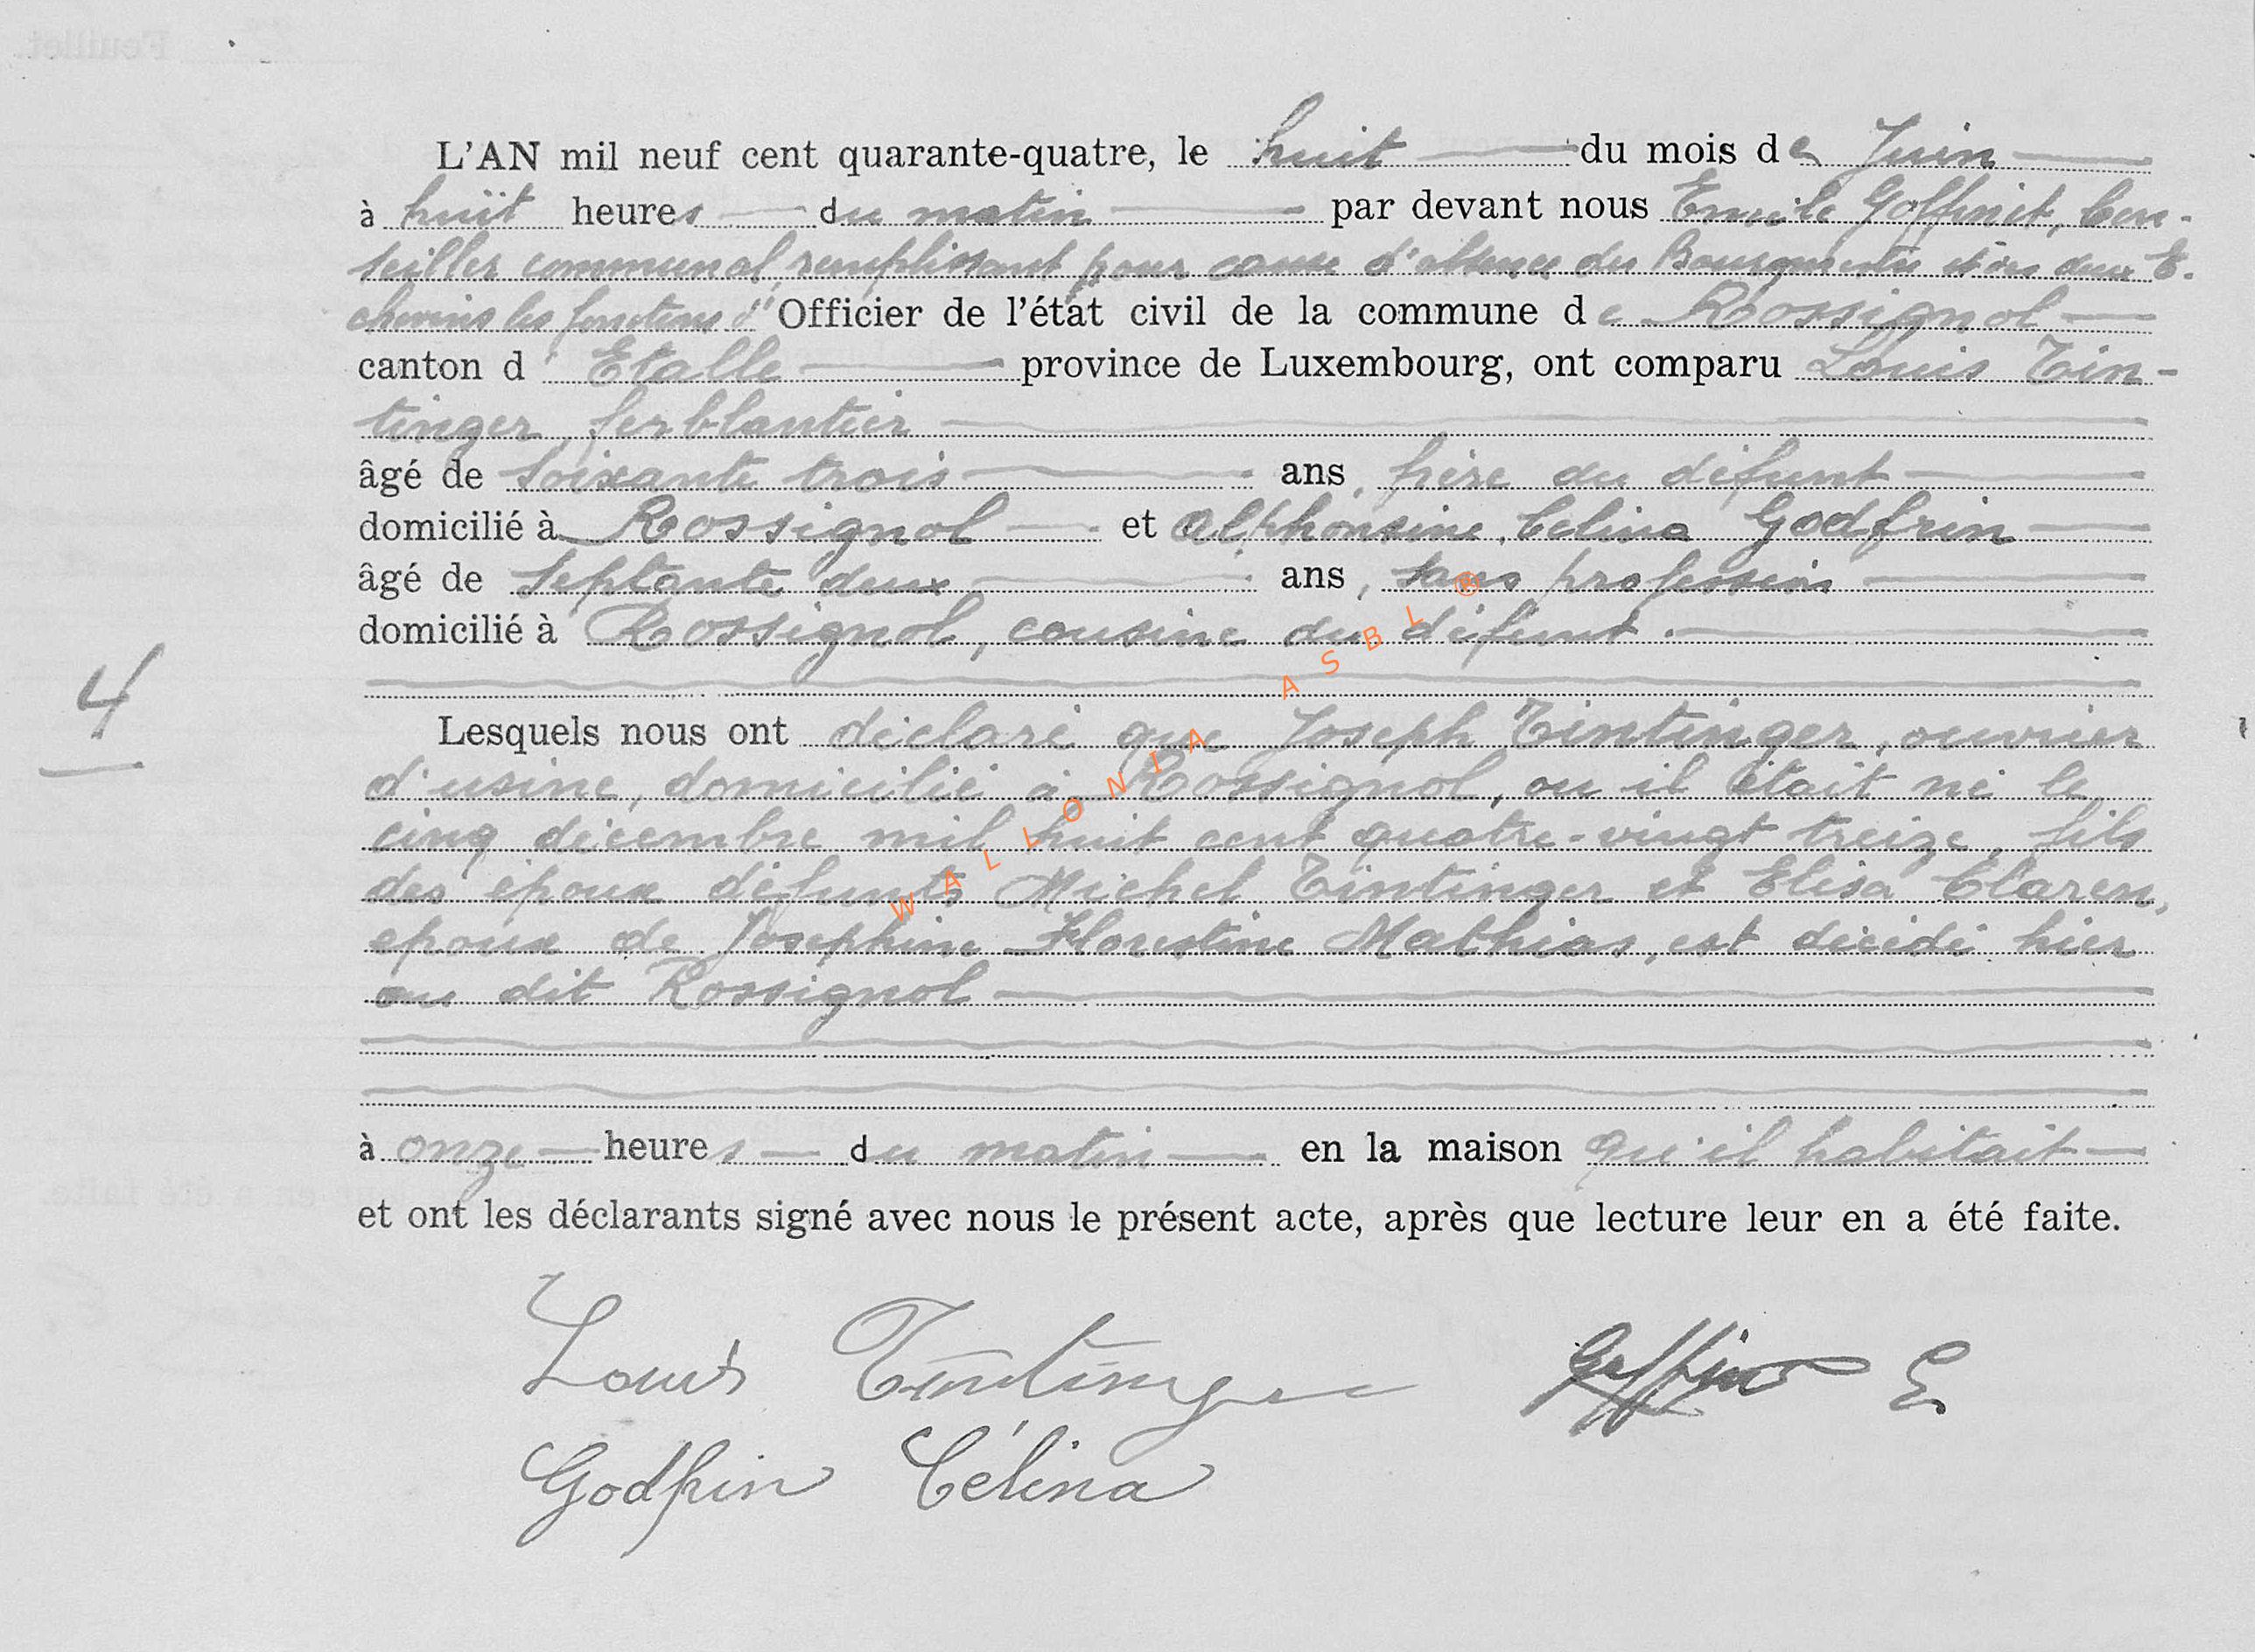 L'AN mil neuf cent quarante-quatre, le huit du mois de Juin
à huit heures du matin par devant nous Emile Goffinet, Con-
seiller communal, remplissant pour cause d'absence du Bourgmestre et des deux E-
chevins les fonctions d'Officier de l'état civil de la commune de Rossignol
canton d'Etalle province de Luxembourg, ont comparu Louis Tin-
tinger, ferblantier
âgé de soixante trois ans, frère du défunt
domicilié à Rossignol et Alphonsine, Celina Godfrin
âgé de septante deux ans, sans profession
domicilié à Rossignol, cousine du défunt.
4
Lesquels nous ont déclaré que Joseph Tintinger, ouvrier
d'usine, domicilié à Rossignol, ou il était né le
cinq décembre mil huit cent quatre-vingt treize, fils
des époux défunts Michel Tintinger et Elisa Claren,
epoux de Josephine Florentine Mathias, est décédé hier
au dit Rossignol
à onze heures du matin en la maison qu'il habitait
et ont les déclarants signé avec nous le présent acte, après que lecture leur en a été faite.
Louis Tintinger Goffinet E
Godfrin Célina
WALLONIA ASBL ®